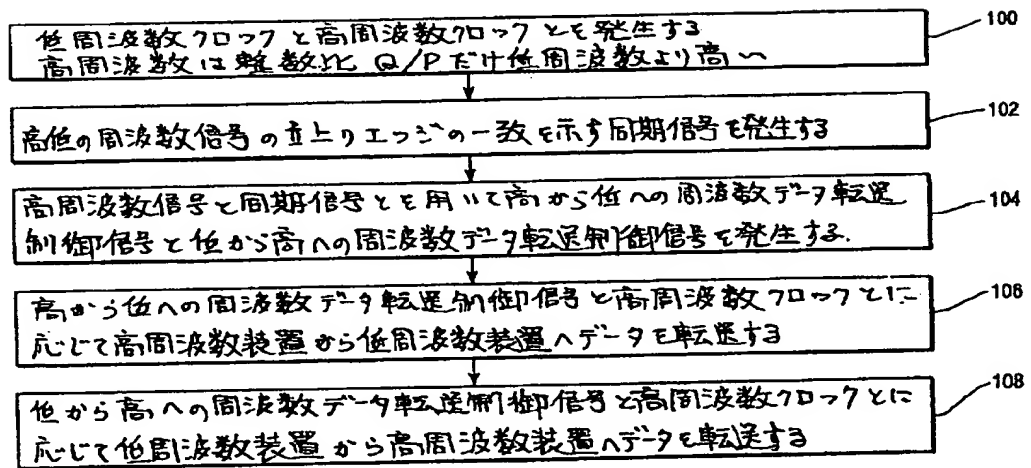 低周波数クロックと高周波数クロックとを発生する
高周波数は整数比 Q/Pだけ低周波数より高い
100
高低の周波数信号の立上りエッジの一致を示す同期信号を発生する
102
高周波数信号と同期信号とを用いて高から低への周波数データ転送
制御信号と低から高への周波数データ転送制御信号を発生する.
104
高から低への周波数データ転送制御信号と高周波数クロックとに
応じて高周波数装置から低周波数装置へデータを転送する
106
低から高への周波数データ転送制御信号と高周波数クロックとに
応じて低周波数装置から高周波数装置へデータを転送する
108